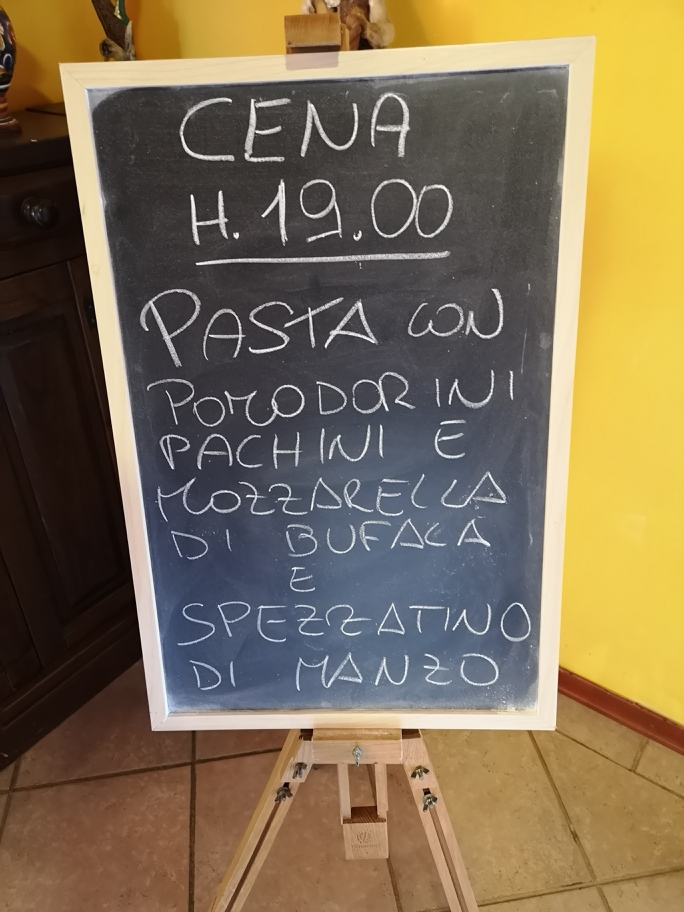 CENA
H. 19.00
PASTA CON
POMODORINI
PACHINI E
MOZZARELLA
DI BUFALA
E
SPEZZATINO
DI MANZO